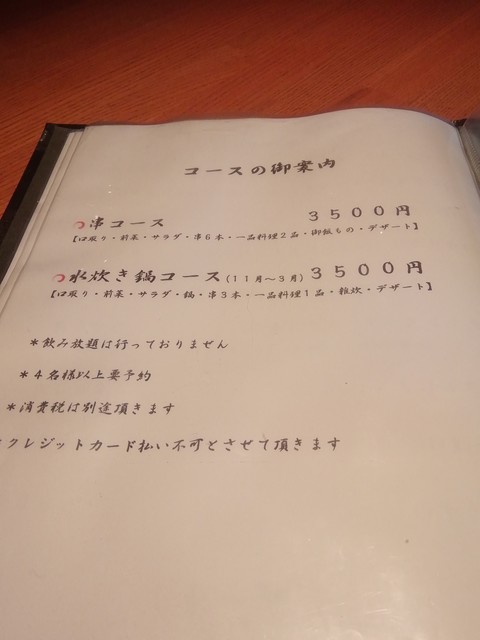 コースの御案内
串コース 3500円
【口取り・前菜・サラダ・串6本・一品料理2品・御飯もの・デザート】
水炊き鍋コース(11月～3月) 3500円
【口取り・前菜・サラダ・鍋・串3本・一品料理1品・雑炊・デザート】
*飲み放題は行っておりません
*4名様以上要予約
*消費税は別途頂きます
*クレジットカード払い不可とさせて頂きます